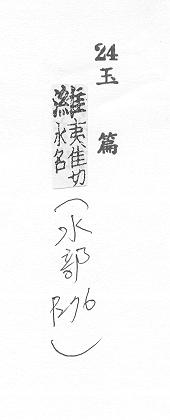 24
玉篇
濰 夷隹切
水名
(水部 P76)